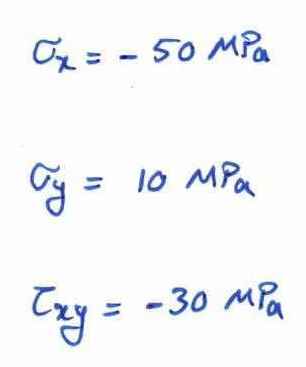 σx = - 50 MPa
σy = 10 MPa
τxy = -30 MPa